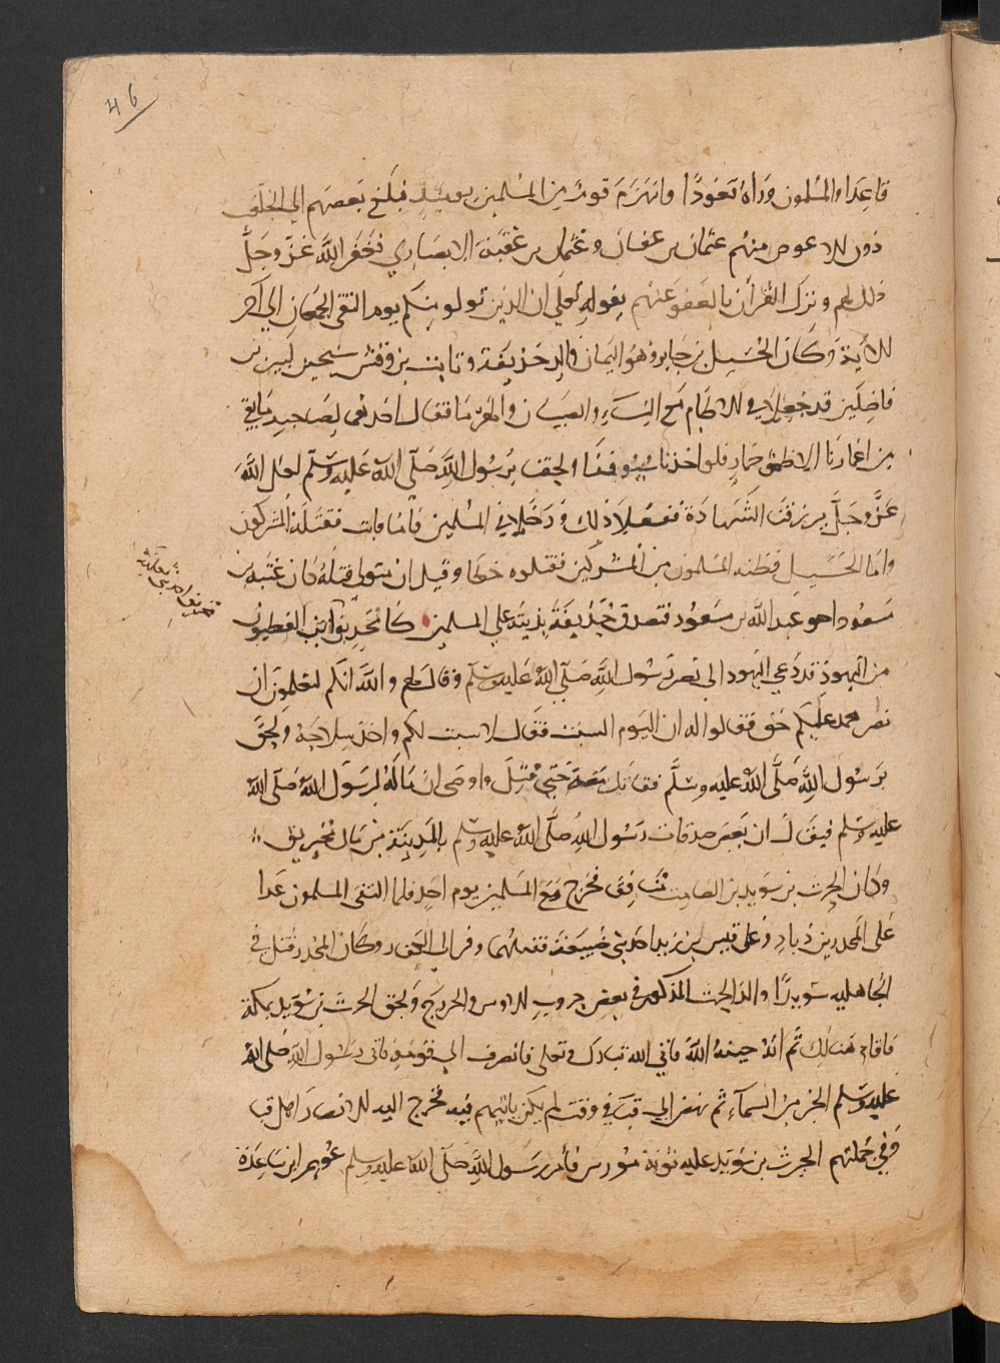 46
قاعدا والمسلمون وراه قعودا وانهزم قوم من المسلمين يوميذ فبلغ بعضهم الي الجلعب
دون الاعوص منهم عثمان بن عفان وعثمان بن عقبة الانصاري فغفر الله عز وجل
ذلك لهم ونزل القرآن بالعفو عنهم بقوله تعلي ان الذين تولو منكم يوم التقي الجمعان الي آخر
الاية وكان الحسيل بن جابر وهو اليمان والد حذيفة وثابت بن وقش شيخين كبيرين
فاضلين قد جعلا في الاطام مع النساء والصبيان والهرما فقال احدهما لصاحبه ما بقي
من اعمارنا الا ظمؤ حمار فلو اخذنا سيوفنا ولحقنا برسول الله صلى الله عليه وسلم لعل الله
عز وجل يرزقنا الشهادة ففعلا ذلك ودخلا في المسلمين فاما ثابت فقتله المشركون
واما الحسيل فظنه المسلمون من المشركين فقتلوه خطا وقيل ان متولي قتله كان عتبة بن
مسعود اخو عبد الله بن مسعود فتصدق حذيفة بديته علي المسلمين كان مخيريق احد بني ثعلبة بن الفطيون
من اليهود قد دعي اليهود الي نصر رسول الله صلى الله عليه وسلم وقال لهم والله انكم لتعلمون ان
نصر محمد عليكم حق فقالوا له ان اليوم السبت فقال لا سبت لكم واخذ سلاحه ولحق
برسول الله صلى الله عليه وسلم فقاتل معه حتي قتل واوصى ان ماله لرسول الله صلى الله
عليه وسلم فيقال ان بعض صدقات رسول الله صلى الله عليه وسلم بالمدينة من مال مخيريق
وكان الحرث بن سويد بن الصامت منافق فخرج مع المسلمين يوم احد فلما التقي المسلمون عدا
علي المجدر بن ذياد وعلي قيس بن زيد احد بني ضبيعة فقتلهما وفر الي الكفار وكان المجدر قتل في
الجاهليه سويدا والد الحرث المذكور في بعض حروب الاوس والخزرج ولحق الحرث بن سويد بمكة
فاقام هنالك ثم انه حينه الله فاتي الله تبارك وتعلى فانصرف الي قومه فاتى رسول الله صلى الله
عليه وسلم الخبر من السماء ثم نهض الي قبا في وقت لم يكن ياتيهم فيه فخرج اليه الانصار اهل قبا
وفي جملتهم الحرث بن سويد عليه ثوبه مورس فأمر رسول الله صلى الله عليه وسلم عويمر ابن ساعدة